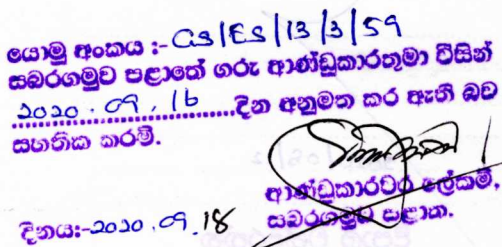 යොමු අංකය :- CS/ES/13/3/59
සබරගමුව පළාතේ ගරු ආණ්ඩුකාරතුමා විසින්
2020.09.16 දින අනුමත කර ඇති බව
සහතික කරමි.
ආණ්ඩුකාරවර ලේකම්,
දිනය:-2020.09.18 සබරගමුව පළාත.